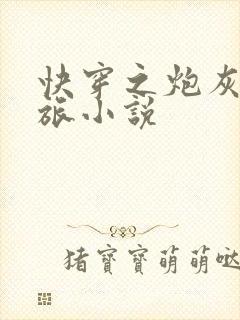 快穿之炮灰
旅小說
猪寶寶萌萌哒